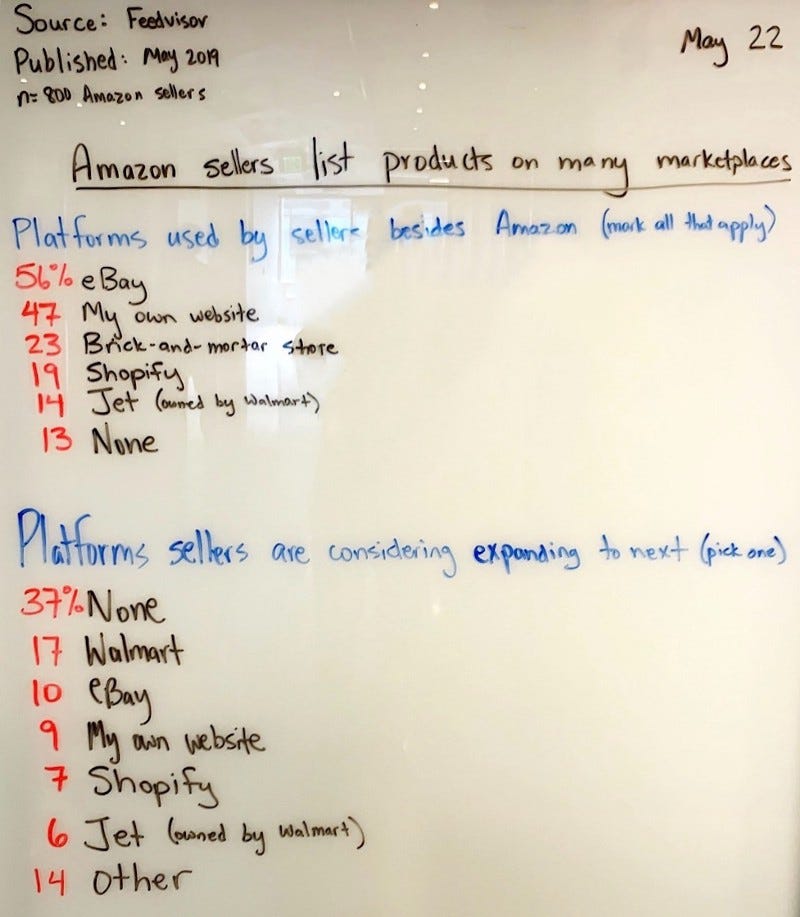 Source: Feedvisor
Published: May 2019
n= 800 Amazon sellers
May 22
Amazon sellers list products on many marketplaces
Platforms used by sellers besides Amazon (mark all that apply)
56% eBay
47 My own website
23 Brick-and-mortar store
19 Shopify
14 Jet (owned by Walmart)
13 None
Platforms sellers are considering expanding to next (pick one)
37% None
17 Walmart
10 eBay
9 My own website
7 Shopify
6 Jet (owned by Walmart)
14 Other